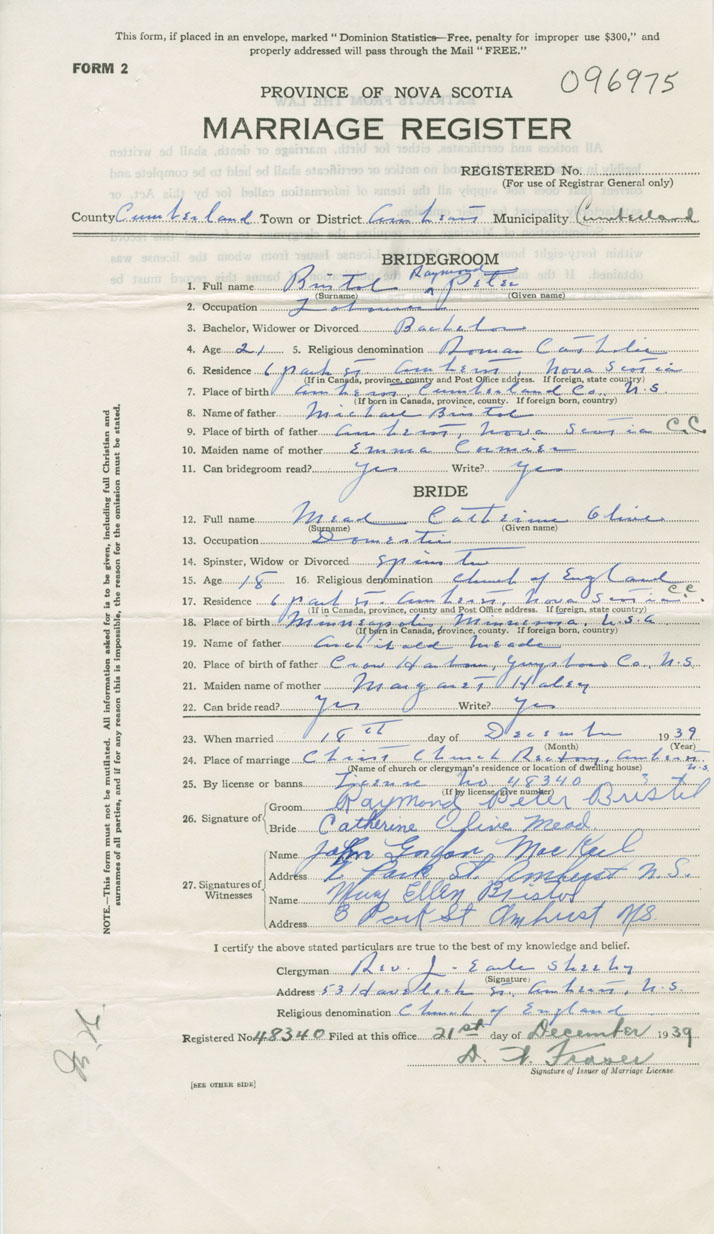 This form, if placed in an envelope, marked "Dominion Statistics—Free, penalty for improper use $300," and
properly addressed will pass through the Mail "FREE."
FORM 2
096975
PROVINCE OF NOVA SCOTIA
MARRIAGE REGISTER
REGISTERED No.
(For use of Registrar General only)
County Cumberland Town or District Amherst Municipality Cumberland
BRIDEGROOM
1. Full name Bristol Raymond Peter
(Surname) (Given name)
2. Occupation Labourer
3. Bachelor, Widower or Divorced Bachelor
4. Age 21 5. Religious denomination Roman Catholic
6. Residence 6 Park St. Amherst, Nova Scotia
(If in Canada, province, county and Post Office address. If foreign, state country)
7. Place of birth Amherst, Cumberland Co., N.S.
(If born in Canada, province, county. If foreign born, country)
8. Name of father Michael Bristol
9. Place of birth of father Amherst, Nova Scotia C.C.
10. Maiden name of mother Emma Cormier
11. Can bridegroom read? Yes Write? Yes
BRIDE
12. Full name Mead Catherine Olive
(Surname) (Given name)
13. Occupation Domestic
14. Spinster, Widow or Divorced Spinster
15. Age 18 16. Religious denomination Church of England
17. Residence 6 Park St. Amherst, Nova Scotia C.C.
(If in Canada, province, county and Post Office address. If foreign, state country)
18. Place of birth Minneapolis, Minnesota, U.S.A
(If born in Canada, province, county. If foreign born, country)
19. Name of father Archibald Meade
20. Place of birth of father Crow Harbour, Guysboro Co., N.S.
21. Maiden name of mother Margaret Haley
22. Can bride read? Yes Write? Yes
23. When married 18th day of December 1939
(Month) (Year)
24. Place of marriage Christ Church Rectory, Amherst N.S.
(Name of church or clergyman's residence or location of dwelling house)
25. By license or banns License No 48340
(If by license, give number)
26. Signature of Groom Raymond Peter Bristol
Bride Catherine Olive Mead
27. Signatures of Witnesses
Name John Gordon MacKeil
Address Park St. Amherst N.S.
Name Mary Ellen Bristol
Address Park St Amhurst NS
I certify the above stated particulars are true to the best of my knowledge and belief.
Clergyman Rev. J. Earle Sheehy
(Signature)
Address 53 Havelock St. Amherst, N.S.
Religious denomination Church of England
Registered No. 48340 Filed at this office 21st day of December 1939
D. Fraser
Signature of Issuer of Marriage License
[SEE OTHER SIDE]
NOTE.—This form must not be mutilated. All information asked for is to be given, including full Christian and
surnames of all parties, and if for any reason this is impossible, the reason for the omission must be stated.